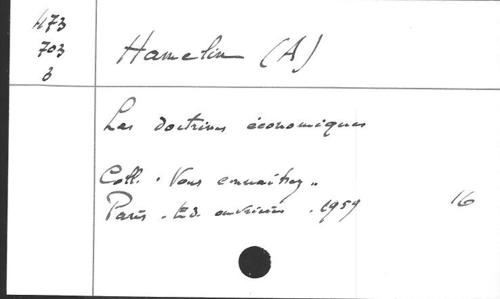 473
703
3
Hamelin (A)
Les doctrines économiques
Coll. "Vous connaîtrez"
Paris. Ed. ouvrières. 1959 16